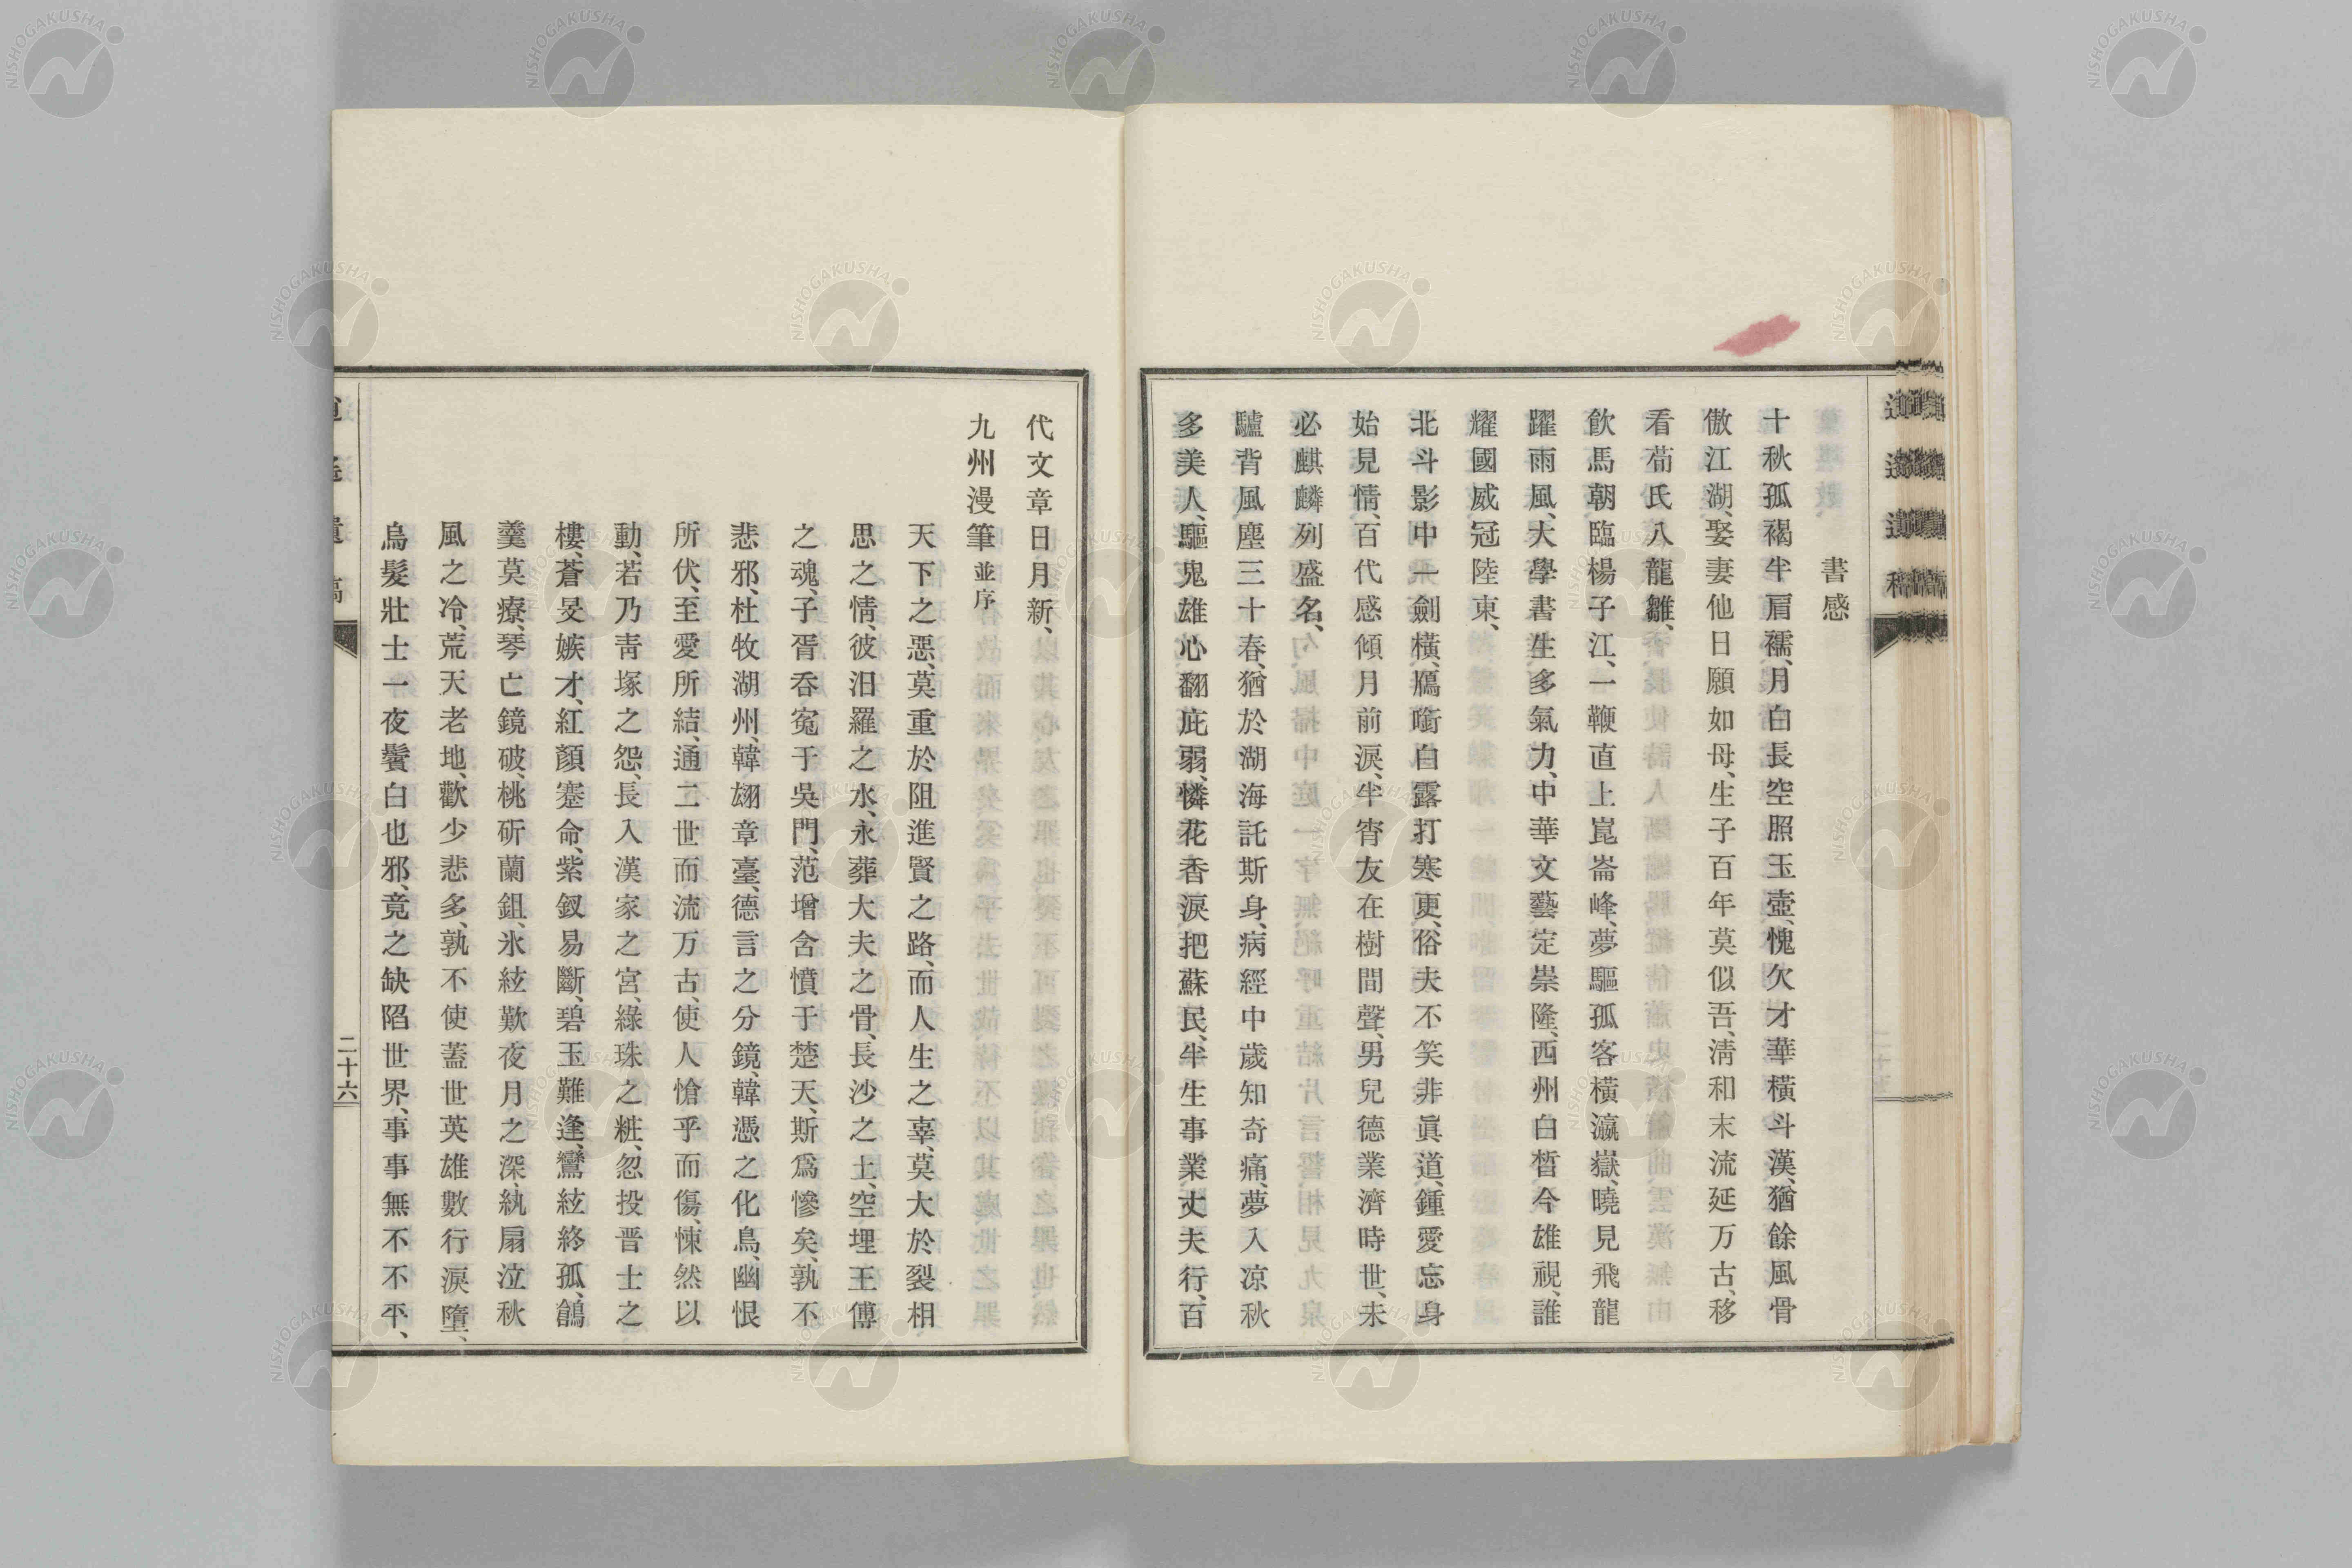 書感
十秋孤褐半肩襦、月白長空照玉壺、愧欠才華橫斗漢、猶餘風骨
傲江湖、娶妻他日願如母、生子百年莫似吾、淸和末流延万古、移
看荀氏八龍雛、
飮馬朝臨楊子江、一鞭直上崑崙峰、夢驅孤客橫瀛嶽、曉見飛龍
躍雨風、大學書生多氣力、中華文藝定崇隆、西州白皙今雄視、誰
耀國威冠陸東、
北斗影中一劍橫、鴈啣白露打寒更、俗夫不笑非眞道、鍾愛忘身
始見情、百代感傾月前淚、半宵友在樹間聲、男兒德業濟時世、未
必麒麟列盛名、
驢背風塵三十春、猶於湖海託斯身、病經中歲知奇痛、夢入凉秋
多美人、驅鬼雄心翻庇弱、憐花香淚把蘇民、半生事業、丈夫行、百
代文章日月新、
九州漫筆並序
天下之惡、莫重於阻進賢之路、而人生之辜、莫大於裂相
思之情、彼汨羅之水、永葬大夫之骨、長沙之土、空埋王傅
之魂、子胥呑寃于吳門、范增含憤于楚天、斯爲慘矣、孰不
悲邪、杜牧湖州、韓翃章臺、德言之分鏡、韓憑之化鳥、幽恨
所伏、至愛所結、通二世而流万古、使人愴乎而傷、悚然以
動、若乃靑塚之怨、長入漢家之宮、綠珠之粧、忽投晋士之
樓、蒼旻嫉才、紅顏蹇命、紫釵易斷、碧玉難逢、鸞絃終孤、鶬
羹莫療、琴亡鏡破、桃斫蘭鉏、氷絃歎夜月之深、紈扇泣秋
風之冷、荒天老地、歡少悲多、孰不使蓋世英雄數行淚墮、
烏髮壯士一夜鬢白也邪、竟之缺陷世界、事事無不不平、
二十六